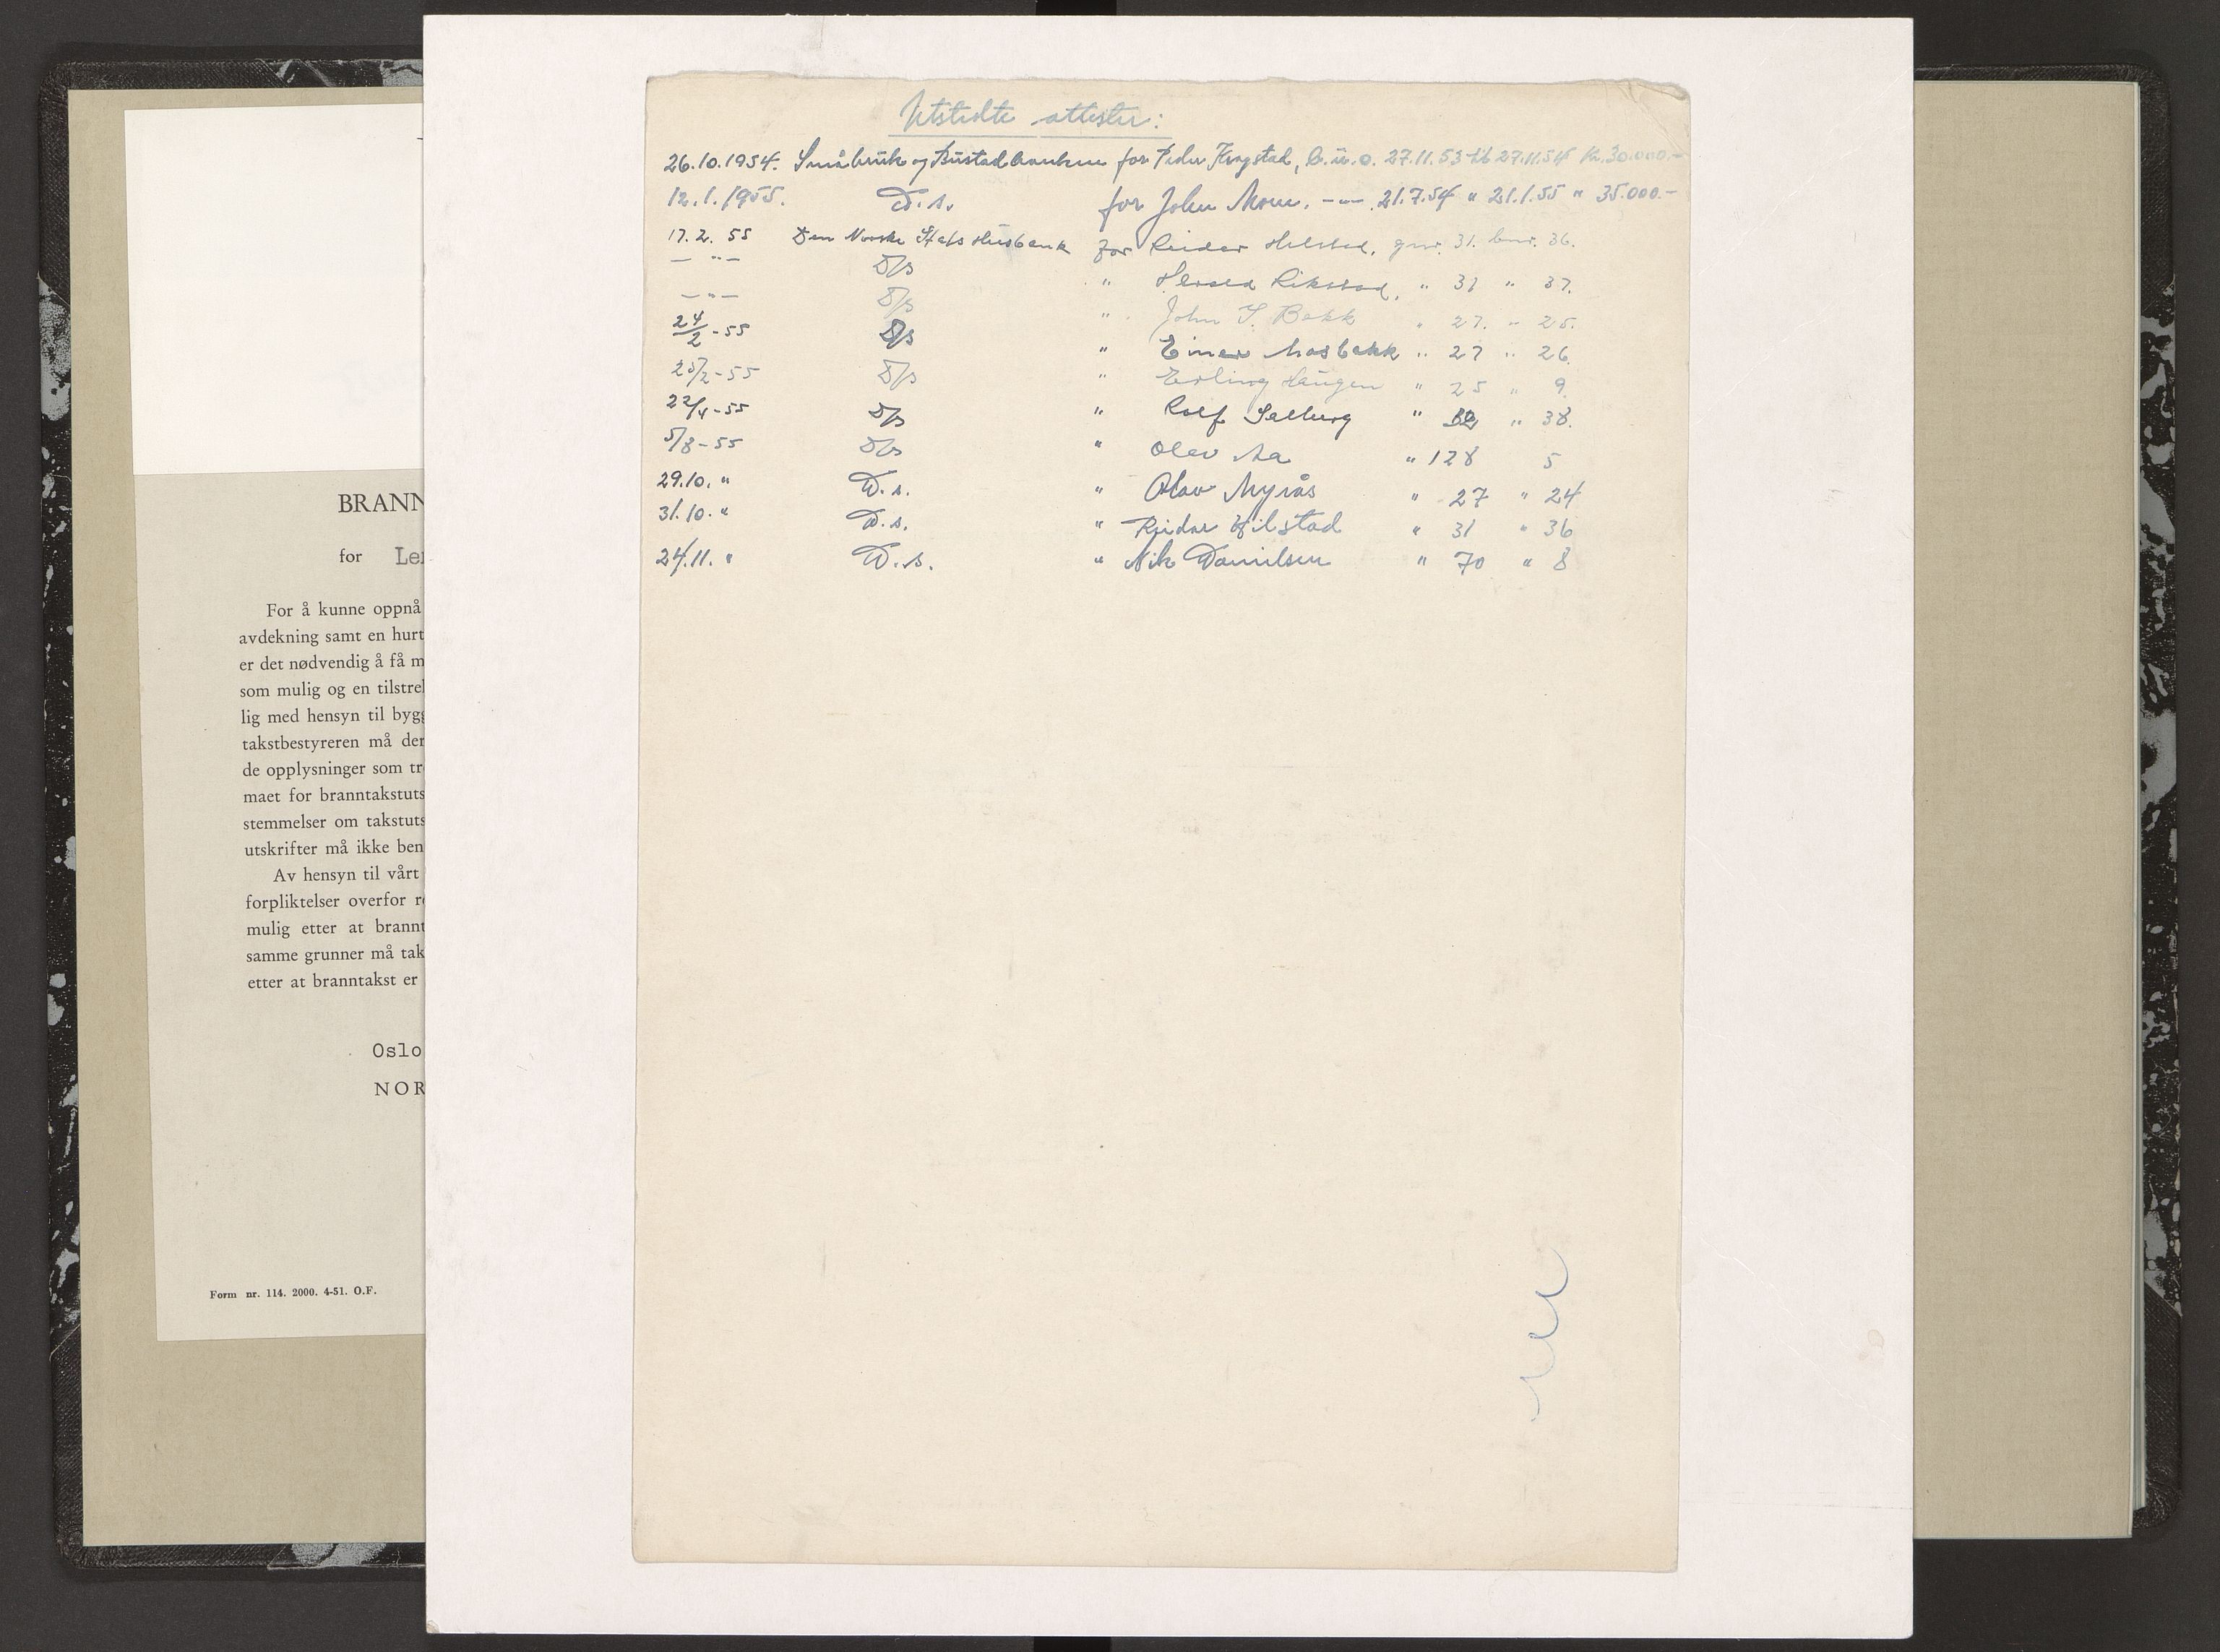 Utstedte attester:
26.10.1954. Småbruk og Bustadbanken for Peder Krogstad, b.u.o. 27.11.53 til 27.11.54 kr. 30.000.-
12.1.1955. D.s. for John Moum. -"- 21.7.54 " 21.1.55 " 35.000.-
17.2.55 Den Norske Stats Husbank for Reidar Hilstad, gnr. 31. bnr. 36.
-"- D/s " Harald Rikstad, " 31 " 37.
-"- D/s " John S. Bakk " 27. " 25.
24/2-55 D/s " Einar Mosbakk " 27 " 26.
25/2-55 D/s " Erling Haugen " 25 " 9.
22/4-55 D/s " Rolf Salberg " " 38.
5/8-55 D/s " Olav Aa " 128 5
29.10. " D.s. " Olav Myrås " 27 " 24
31.10. " D.s. " Reidar Hilstad " 31 " 36
24.11. " D.s. " Nik Danielsen " 70 " 8
BRANN
for Le
For å kunne oppnå
avdekning samt en hurt
er det nødvendig å få m
som mulig og en tilstrel
lig med hensyn til bygg
takstbestyreren må der
de opplysninger som tr
maet for branntakstuts
stemmelser om takstuts
utskrifter må ikke ben
Av hensyn til vårt
forpliktelser overfor r
mulig etter at brannt
samme grunner må tak
etter at branntakst er
Oslo
NOR
Form nr. 114. 2000. 4-51. O.F.